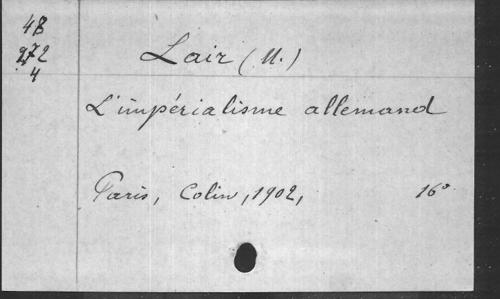 48
272
4
Lair (M.)
L'impérialisme allemand
Paris, Colin, 1902, 16°